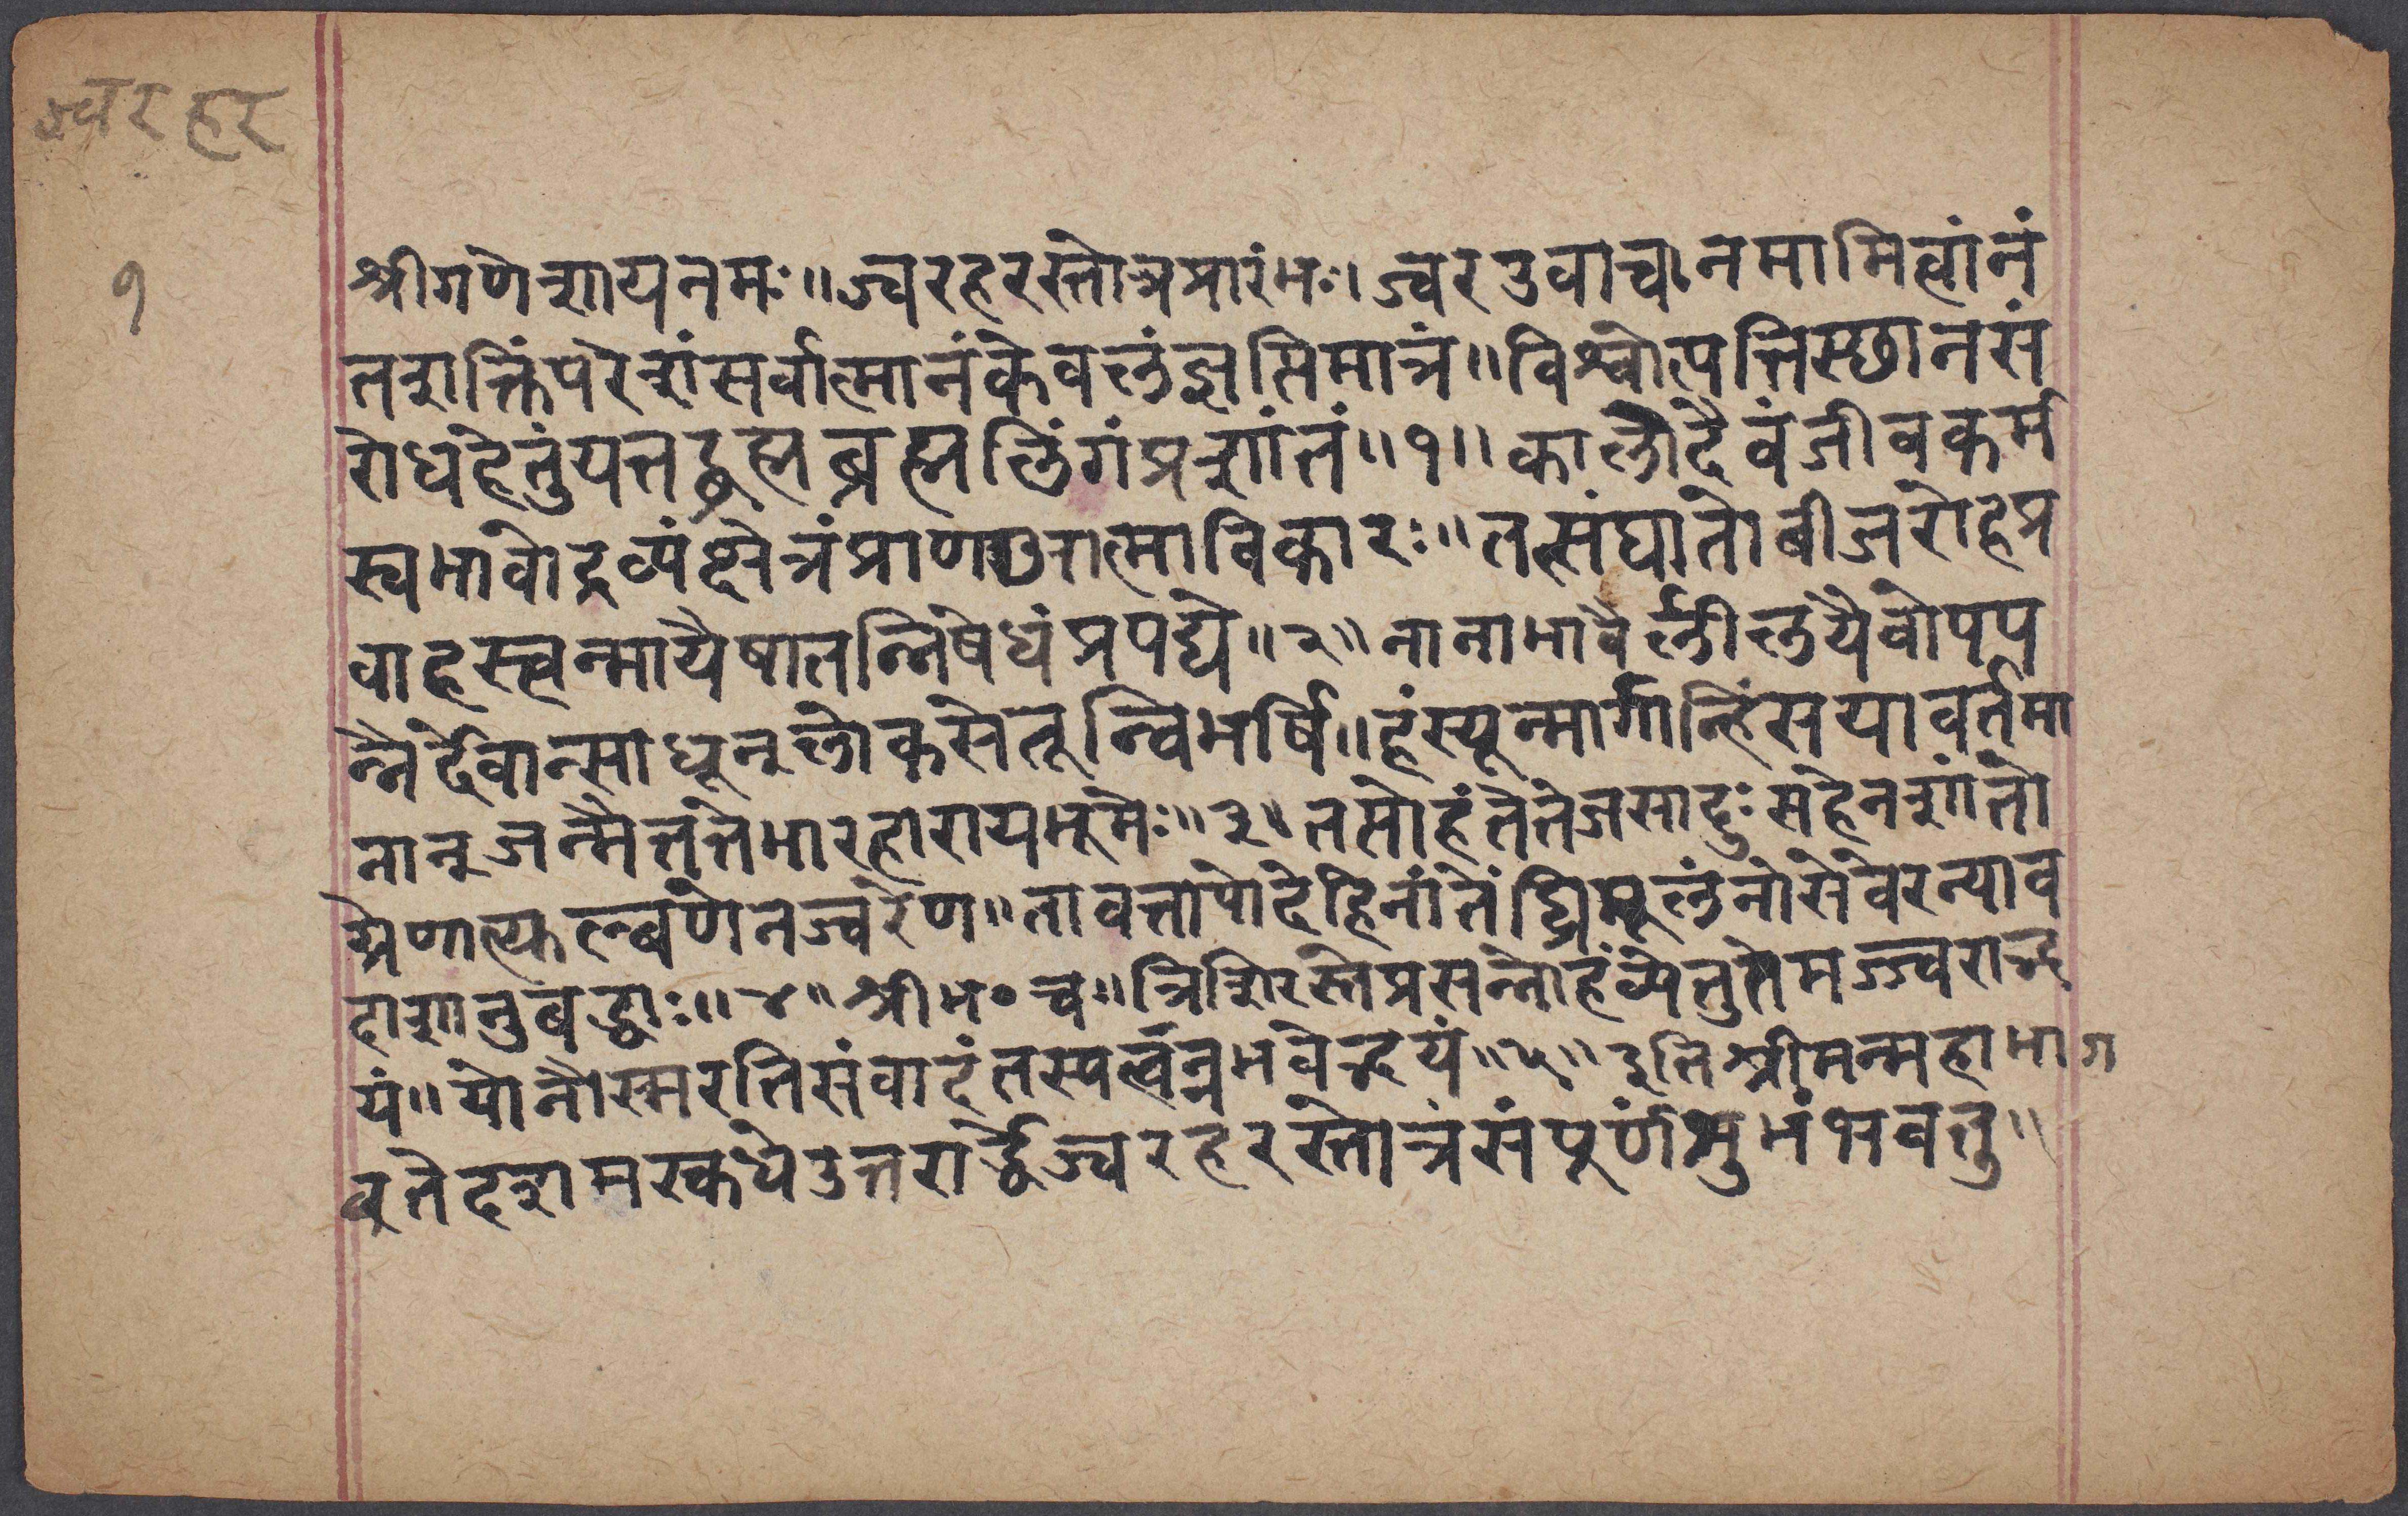 ज्वरहर
१
श्रीगणेशायनमः॥ज्वरहरस्तोत्रप्रारंभः।ज्वरउवाच।नमामित्वांनं
तशक्तिंपरेशंसर्वात्मानंकेवलंज्ञप्तिमात्रं॥विश्वोत्पत्तिस्छानसं
रोधहेतुंयत्तद्ब्रह्मब्रह्मलिंगंप्रशांतं॥१॥कालोदैवंजीवकर्म
स्वभावोद्रव्यंक्षेत्रंप्राणआत्माविकारः॥तत्संघातोबीजरोहप्र
वाहस्त्वन्मायैषातन्निषेधंप्रपद्ये॥२॥नानाभावैर्लीलयैवोपप
न्नैर्देवान्साधून्लोकसेतून्विभर्षि॥हंस्यून्मार्गान्हिंसयावर्तमा
नान्जन्मैतत्तेभारहारायभूमेः॥३॥तप्तोहंतेतेजसादुःसहेनशांतो
ग्रेणात्यल्बणेनज्वरेण॥तावत्तापोदेहिनांतेंघ्रिमूलंनोसेवेरन्याव
दाशानुबद्धाः॥४॥श्रीभ॰च॥त्रिशिरस्तेप्रसन्नोहंव्येतुतेमज्ज्वराद्भ
यं॥योनौस्मरतिसंवादंतस्यत्वन्नभवेद्भयं॥५॥इतिश्रीमन्महाभाग
वतेदशमस्कधेउत्तरार्द्धेज्वरहरस्तोत्रंसंपूर्णंशुभंभवतु॥